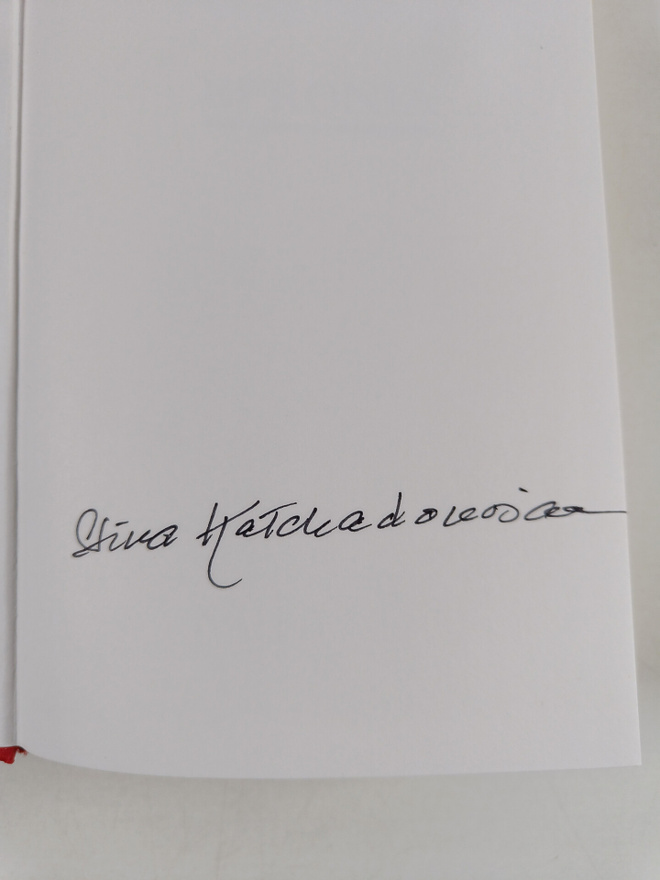 Stina Katchadourian